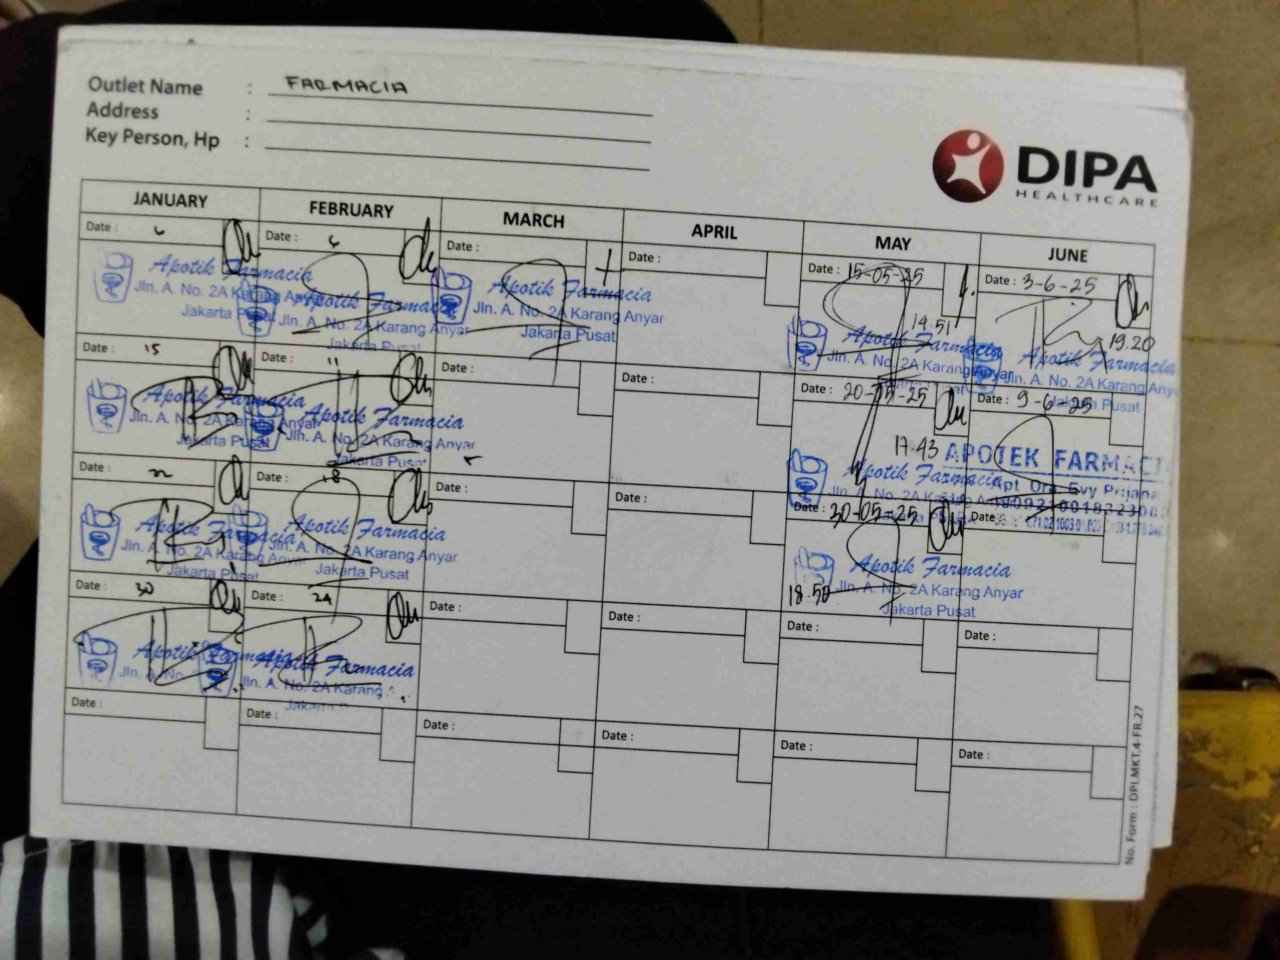 Outlet Name : FARMACIA
Address :
Key Person, Hp :
DIPA
HEALTHCARE
JANUARY FEBRUARY MARCH APRIL MAY JUNE
Date : 6 Date : 6 Date : Date : Date : 15-05-25 Date : 3-6-25
14.51 19.20
Apotik Farmacia
Jln. A. No. 2A Karang Anyar
Jakarta Pusat
Apotik Farmacia
Jln. A. No. 2A Karang Anyar
Jakarta Pusat
Apotik Farmacia
Jln. A. No. 2A Karang Anyar
Jakarta Pusat
Apotik Farmacia
Jln. A. No. 2A Karang Anyar
Apotik Farmacia
Jln. A. No. 2A Karang Anyar
Jakarta Pusat
Date : 15 Date : 11 Date : Date : Date : 20-05-25 Date : 9-6-25
17.43
Apotik Farmacia
Jln. A. No. 2A Karang Anyar
Jakarta Pusat
Apotik Farmacia
Jln. A. No. 2A Karang Anyar
Jakarta Pusat
Apotik Farmacia
Jln. A. No. 2A Karang
APOTEK FARMACI
Apt. Dra. Evy Prijana
Date : 22 Date : 18 Date : Date : Date : 30-05-25 Date :
18.50
Apotik Farmacia
Jln. A. No. 2A Karang Anyar
Jakarta Pusat
Apotik Farmacia
Jln. A. No. 2A Karang Anyar
Jakarta Pusat
Apotik Farmacia
Jln. A. No. 2A Karang Anyar
Jakarta Pusat
Date : 30 Date : 24 Date : Date : Date : Date :
Apotik Farmacia
Jln. A. No.
Apotik Farmacia
Jln. A. No. 2A Karang
Date : Date : Date : Date : Date : Date :
No. Form : DPI.MKT.4-FR.27